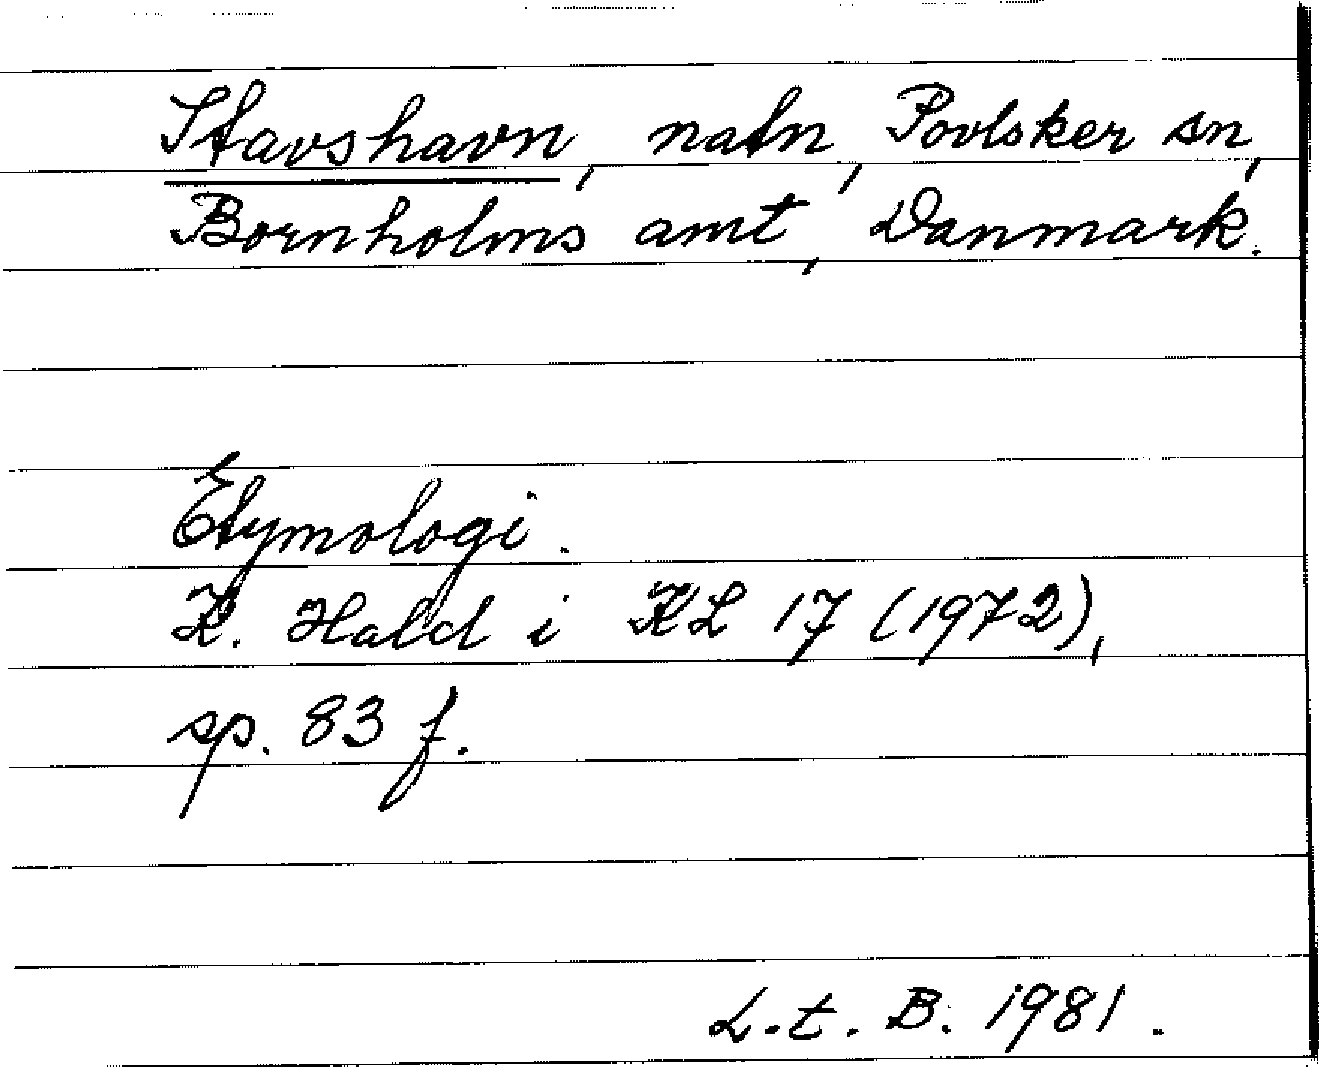 Stavshavn, natn, Povlsker sn,
Bornholms amt, Danmark.
Etymologi.
K. Hald i KL 17 (1972),
sp. 83 f.
L.t. B. 1981.